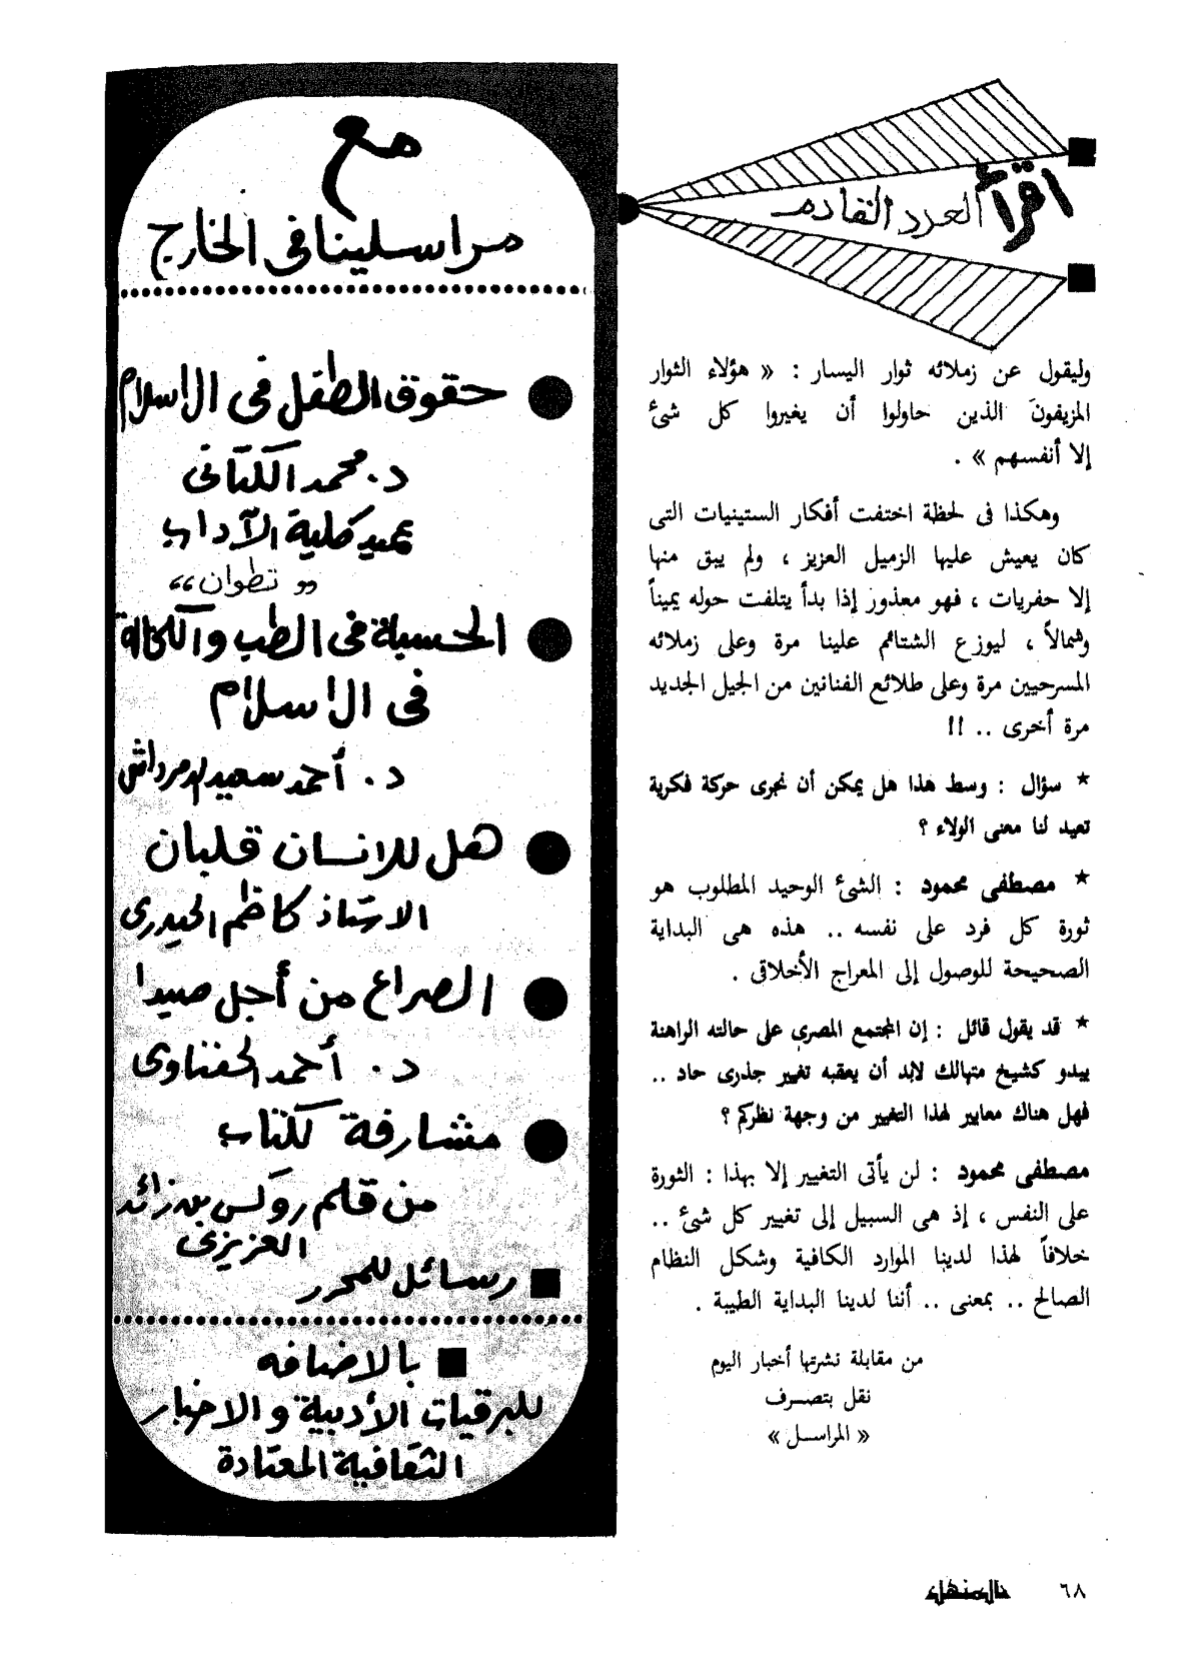 اقرأ العدد القادم
وليقول عن زملائه ثوار اليسار : « هؤلاء الثوار
المزيفونَ الذين حاولوا أن يغيروا كل شئ
إلا أنفسهم » .
وهكذا فى لحظة اختفت أفكار الستينيات التى
كان يعيش عليها الزميل العزيز ، ولم يبق منها
إلا حفريات ، فهو معذور إذا بدأ يتلفت حوله يميناً
وشمالاً ، ليوزع الشتائم علينا مرة وعلى زملائه
المسرحيين مرة وعلى طلائع الفنانين من الجيل الجديد
مرة أخرى .. !!
* سؤال : وسط هذا هل يمكن أن نجرى حركة فكرية
تعيد لنا معنى الولاء ؟
* مصطفى محمود : الشئ الوحيد المطلوب هو
ثورة كل فرد على نفسه .. هذه هى البداية
الصحيحة للوصول إلى المعراج الأخلاقى .
* قد يقول قائل : إن المجتمع المصرى على حالته الراهنة
يبدو كشيخ متهالك لابد أن يعقبه تغيير جذرى حاد ..
فهل هناك معايير لهذا التغيير من وجهة نظركم ؟
مصطفى محمود : لن يأتى التغيير إلا بهذا : الثورة
على النفس ، إذ هى السبيل إلى تغيير كل شئ ..
خلافاً لهذا لدينا الموارد الكافية وشكل النظام
الصالح .. بمعنى .. أننا لدينا البداية الطيبة .
من مقابلة نشرتها أخبار اليوم
نقل بتصرف
« المراسل »
مع
مراسلينا فى الخارج
● حقوق الطفل فى الاسلام
د. محمد الكتانى
عميد كلية الآداب
«تطوان»
● الحسبة فى الطب والكحالة
فى الاسلام
د. أحمد سعيد الدمرداش
● هل للانسان قلبان
الاستاذ كاظم الحيدرى
● الصراع من أجل صيدا
د. أحمد الحفناوى
● مشارفة كتاب
من قلم روكس بن زائد
العزيزى
■ رسائل للمحرر
■ بالاضافه
للبرقيات الأدبية والاخبار
الثقافية المعتادة
٦٨ المنهل